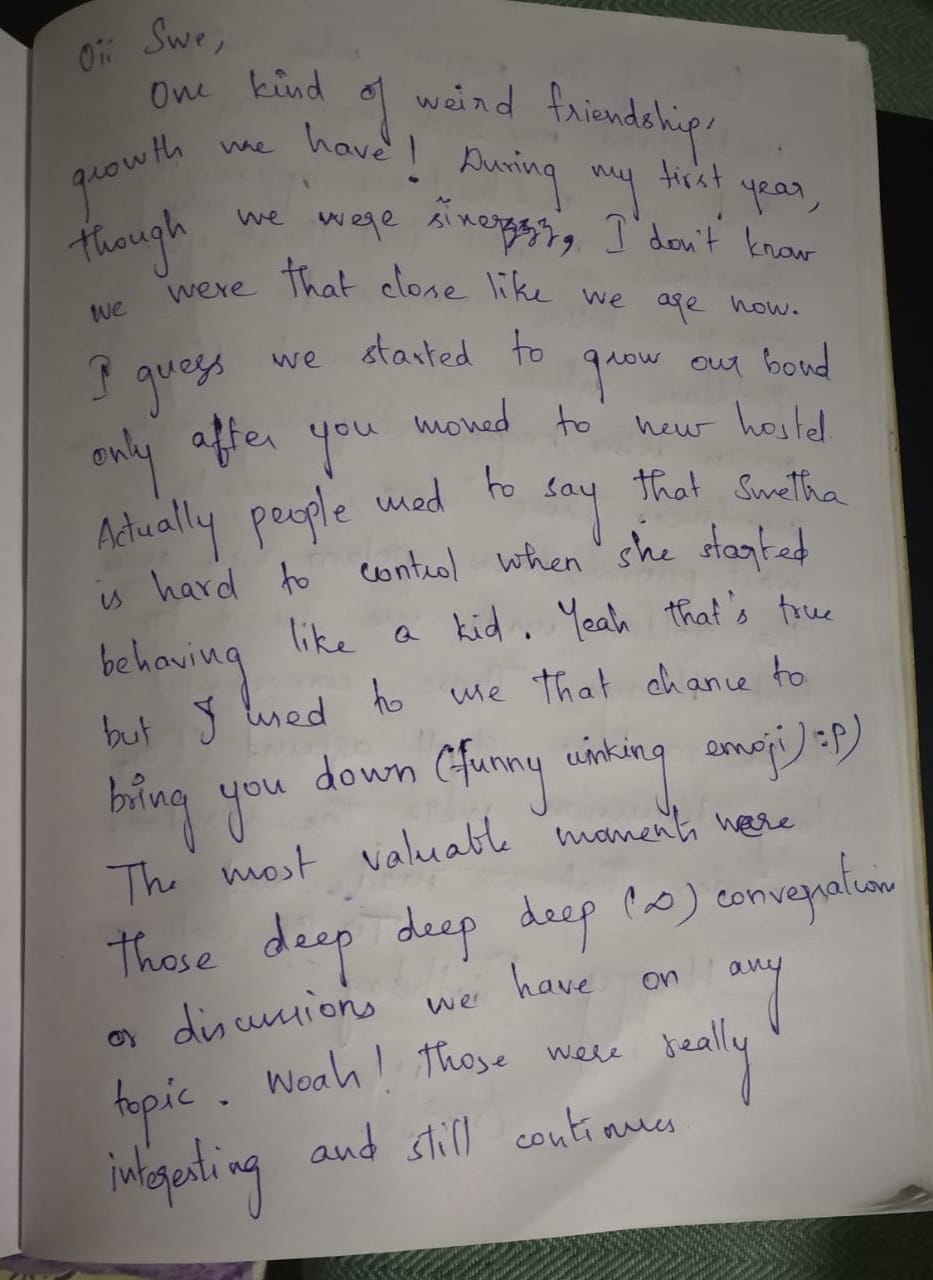 Oii Swe,
One kind of weird friendship,
growth we have! During my first year,
though we were I don't know
we were that close like we are now.
I guess we started to grow our bond
only after you moved to new hostel.
Actually people used to say that Swetha
is hard to control when she started
behaving like a kid. Yeah that's true
but I used to use that chance to
bring you down (funny winking emoji) :P)
The most valuable moments were
those deep deep deep (∞) conversation
or discussions we have on any
topic. Woah! Those were really
interesting and still continues.